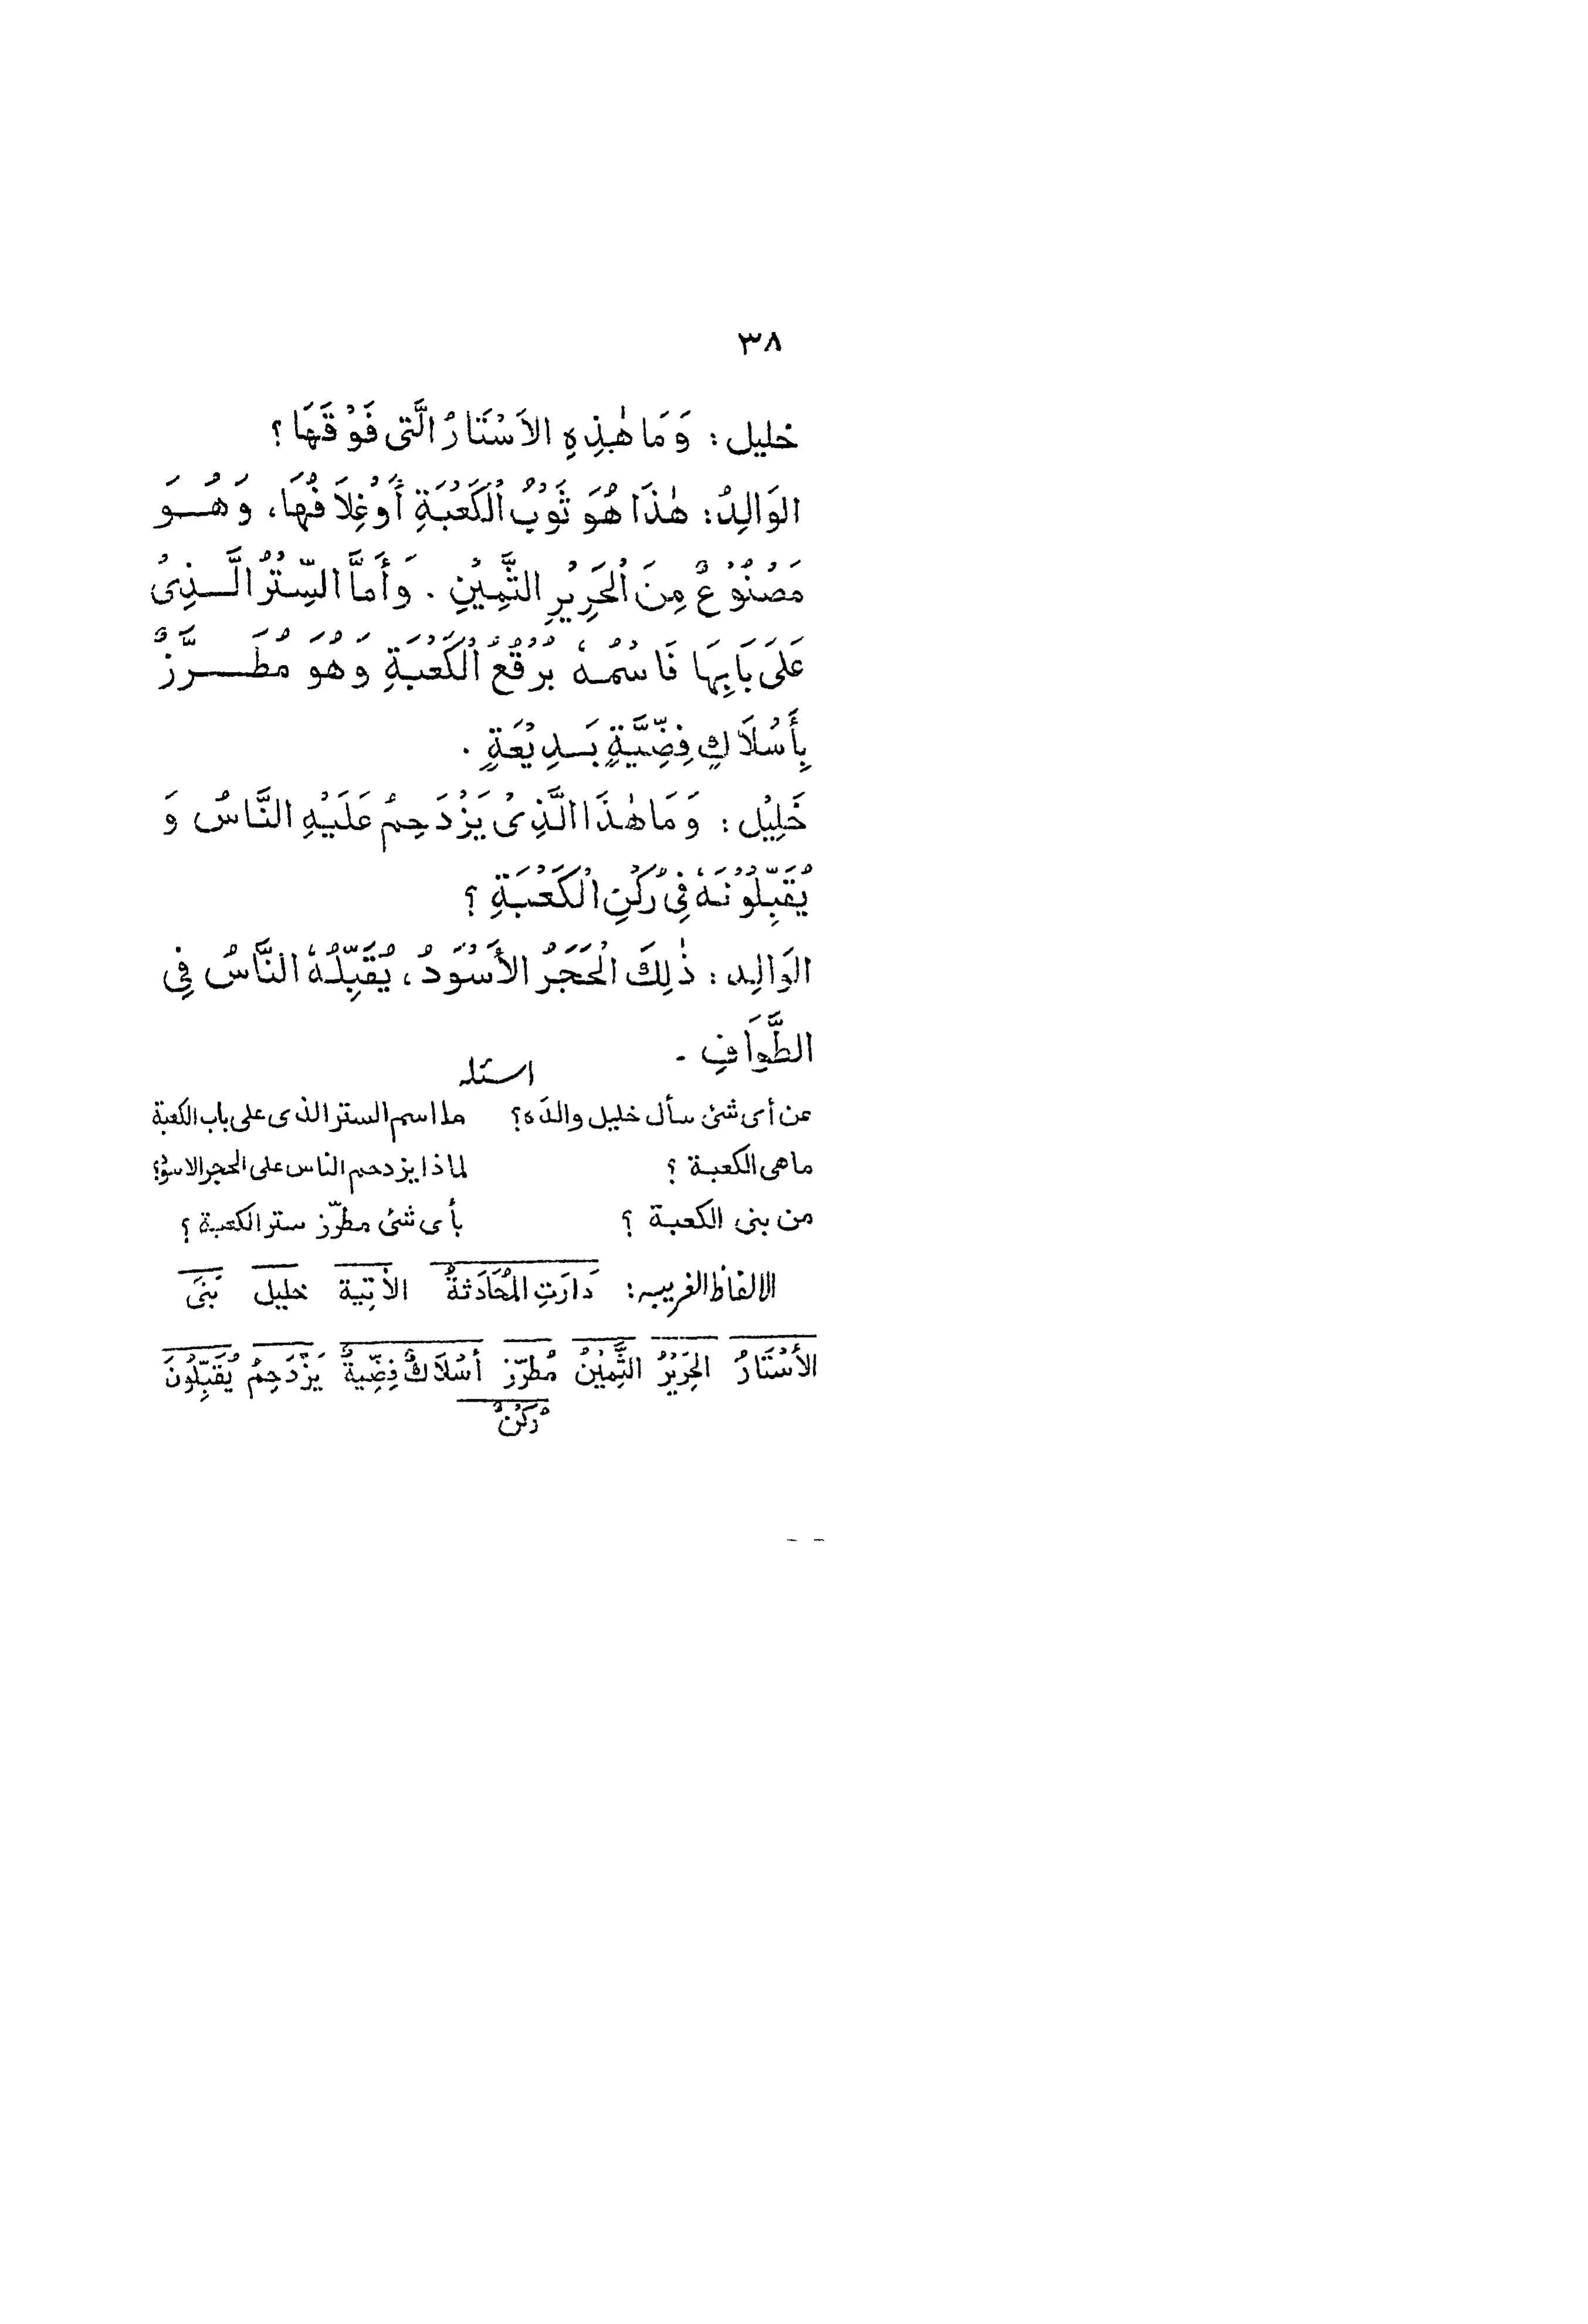 ٣٨
خليل : وَمَا هٰذِهِ الاَسْتَارُ الَّتى فَوْقَهَا؟
الوَالِدُ: هٰذَا هُوَ ثَوْبُ الْكَعْبَةِ أَوْغِلاَفُهَا، وَهُوَ
مَصْنُوْعٌ مِنَ الْحَرِيْرِ الثَّمِيْنِ . وَأَمَّا السِّتْرُ الَّذِىْ
عَلَى بَابِهَا فَاسْمُهٗ بُرْقُعُ الْكَعْبَةِ وَهُوَ مُطَرَّزٌ
بِأَسْلَاكٍ فِضِّيَّةٍ بَدِيْعَةٍ .
خَلِيْل : وَمَا هٰذَا الَّذِىْ يَزْدَحِمُ عَلَيْهِ النَّاسُ وَ
يُقَبِّلُوْنَهٗ فِى رُكْنِ الْكَعْبَةِ ؟
الوَالِد : ذٰلِكَ الْحَجَرُ الأَسْوَدُ، يُقَبِّلُهٗ النَّاسُ فِى
الطَّوَافِ -
اسئله
عن أى شئ سأل خليل والدَه؟ ما اسم الستر الذى على باب الكعبة
ماهى الكعبة ؟ لماذا يزدحم الناس على الحجر الاسود؟
من بنى الكعبة ؟ بأى شئ مطرّز ستر الكعبة ؟
الالفاظ الغريبه: دَارَتِ المُحَادَثةُ الأتِية خليل بَنىَ
الأَسْتَارُ الحَرِيْرُ الثَّمِيْنُ مُطرّز أسْلَاكٌ فِضِّيةٌ يَزْدَحِمُ يُقَبِّلُونَ
رُكْنٌ